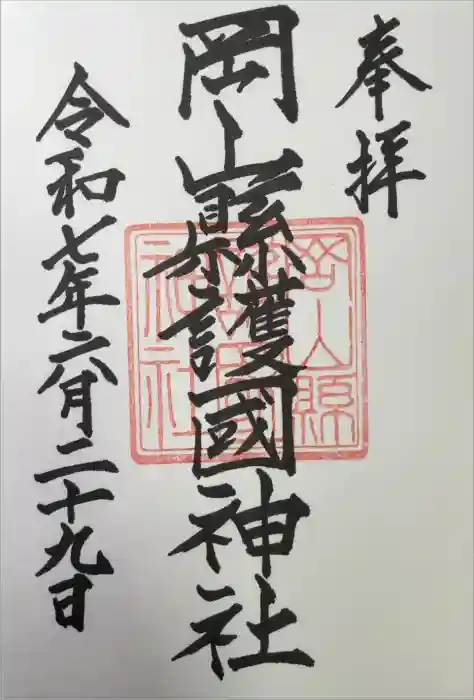 奉拝
岡山縣護國神社
岡山縣護國神社
令和七年六月二十九日